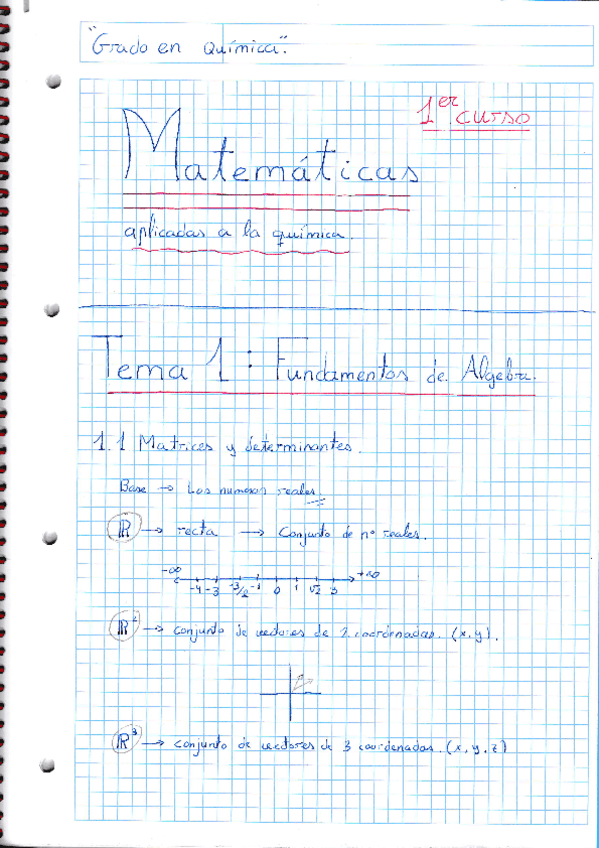 "Grado en Química".
1er curso
Matemáticas
aplicadas a la química.
Tema 1: Fundamentos de Algebra.
1.1 Matrices y determinantes.
Base → Los numeros reales
ℝ → recta → Conjunto de nº reales.
-∞ +∞
-4 -3 -3/2 -1 0 1 √2 3
ℝ² → conjunto de vectores de 2 coordenadas. (x,y).
ℝ³ → conjunto de vectores de 3 coordenadas. (x, y, z)